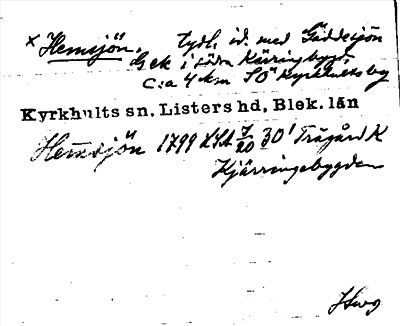 × Hemsjön, tydl. id. med Gäddesjön
G ek i södra Kärringbygd,
c:a 4 km SÖ Kyrkhults by
Kyrkhults sn. Listers hd, Blek. län
Hemsjön 1799 LSA 7/20 30' Trägård K
Kjärringebygden